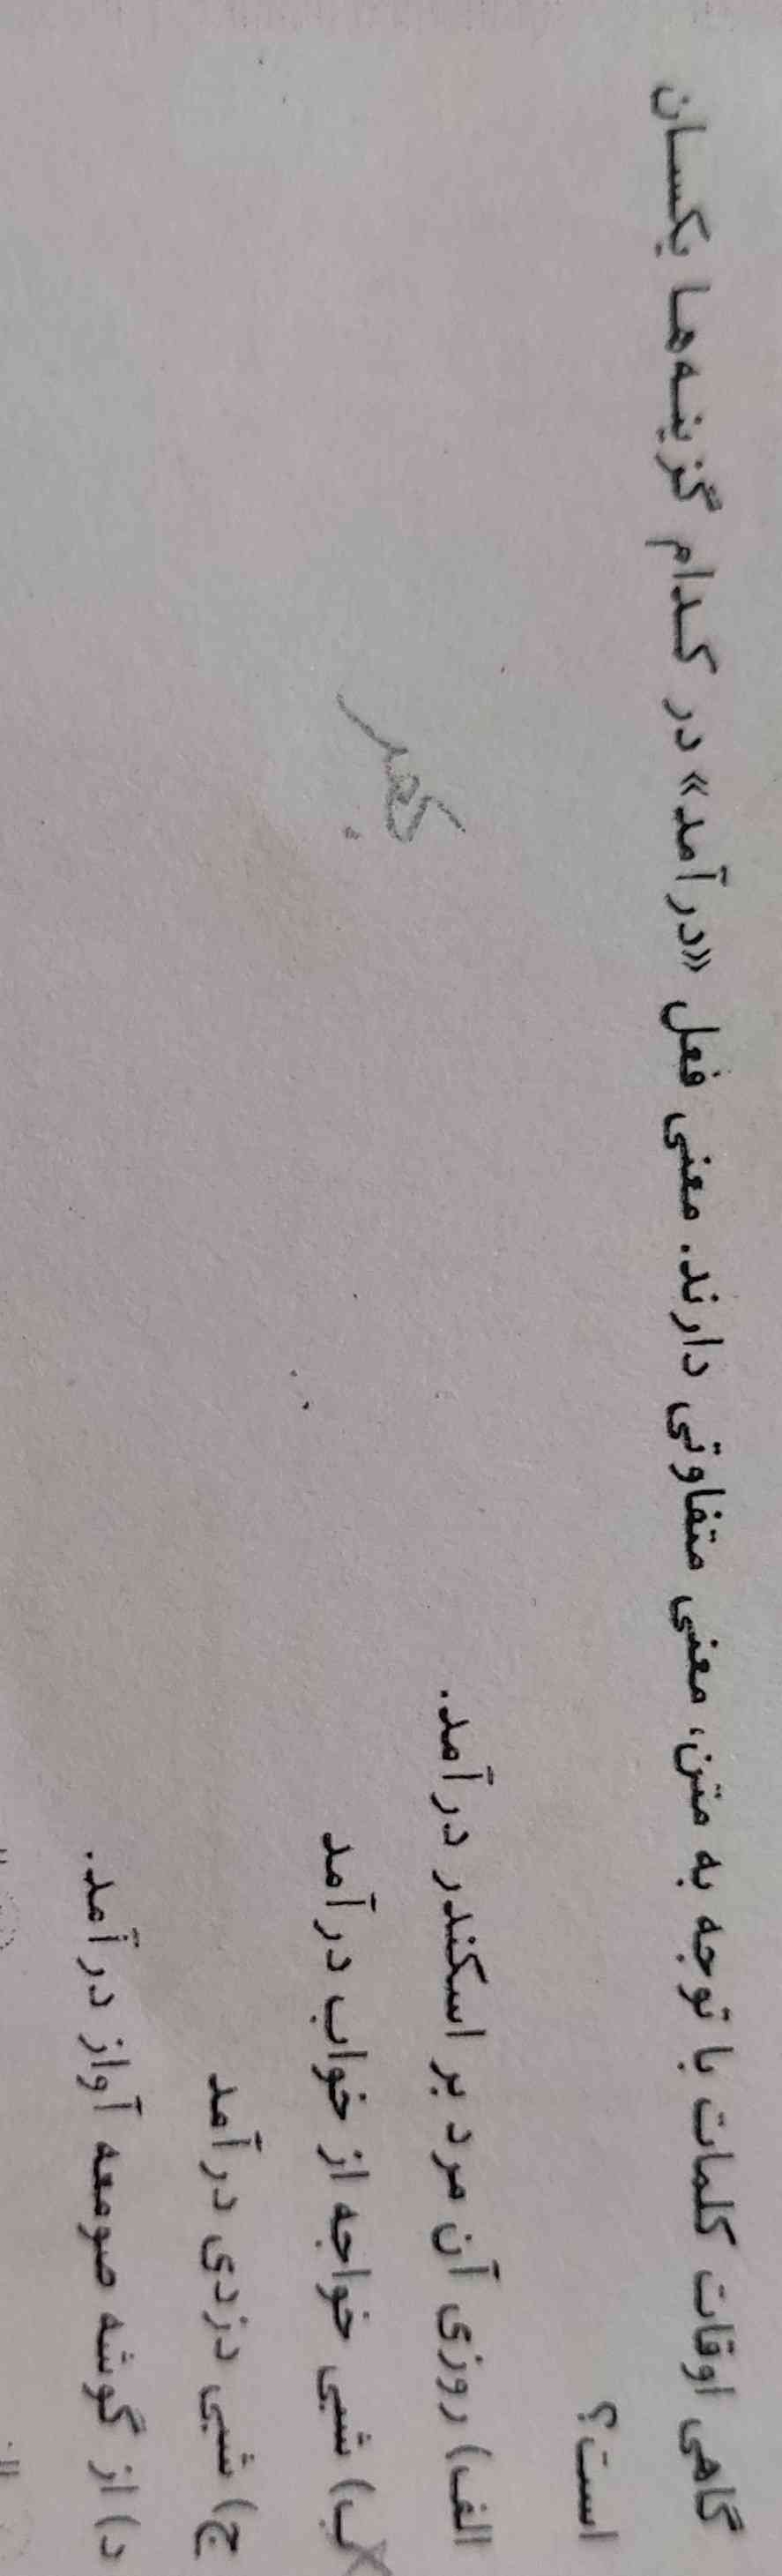 گاهی اوقات کلمات با توجه به متن، معنی متفاوتی دارند. معنی فعل «درآمد» در کدام گزینه‌ها یکسان
است؟
الف) روزی آن مرد بر اسکندر درآمد.
ب) شبی خواجه از خواب درآمد
ج) شبی دزدی درآمد
د) از گوشه صومعه آواز درآمد.